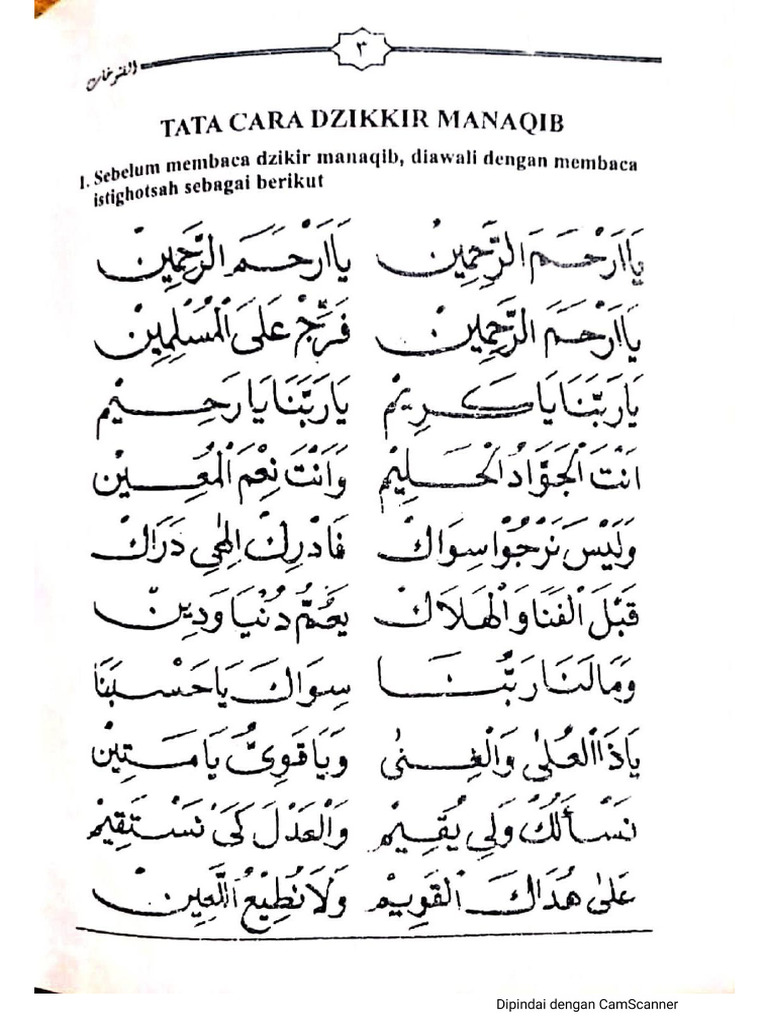 ٣
الفتوحات
TATA CARA DZIKKIR MANAQIB
1. Sebelum membaca dzikir manaqib, diawali dengan membaca
istighotsah sebagai berikut
يَا اَرْحَمَ الرَّحِمِيْنْ يَا اَرْحَمَ الرَّحِمِيْنْ
يَا اَرْحَمَ الرَّحِمِيْنْ فَرِّجْ عَلَى الْمُسْلِمِيْنْ
يَا رَبَّنَا يَا كَرِيْمْ يَا رَبَّنَا يَا رَحِيْمْ
اَنْتَ الْجَوَّادُ الْحَلِيْمْ وَاَنْتَ نِعْمَ الْمُعِيْنْ
وَلَيْسَ نَرْجُوْا سِوَاكْ فَادْرِكْ اِلٰهِى دَرَاكْ
قَبْلَ الْفَنَا وَالْهَلَاكْ يَعُمُّ دُنْيَا وَدِيْنْ
وَمَا لَنَا رَبَّنَا سِوَاكَ يَا حَسْبَنَا
يَا ذَا الْعُلٰى وَالْغِنٰى وَيَا قَوِىُّ يَا مَتِيْنْ
نَسْأَلُكْ وَلِى يُقِيْمْ وَالْعَدْلَ كَىْ نَسْتَقِيْمْ
عَلٰى هُدَاكَ الْقَوِيْمْ وَلَا نُطِيْعُ اللَّعِيْنْ
Dipindai dengan CamScanner